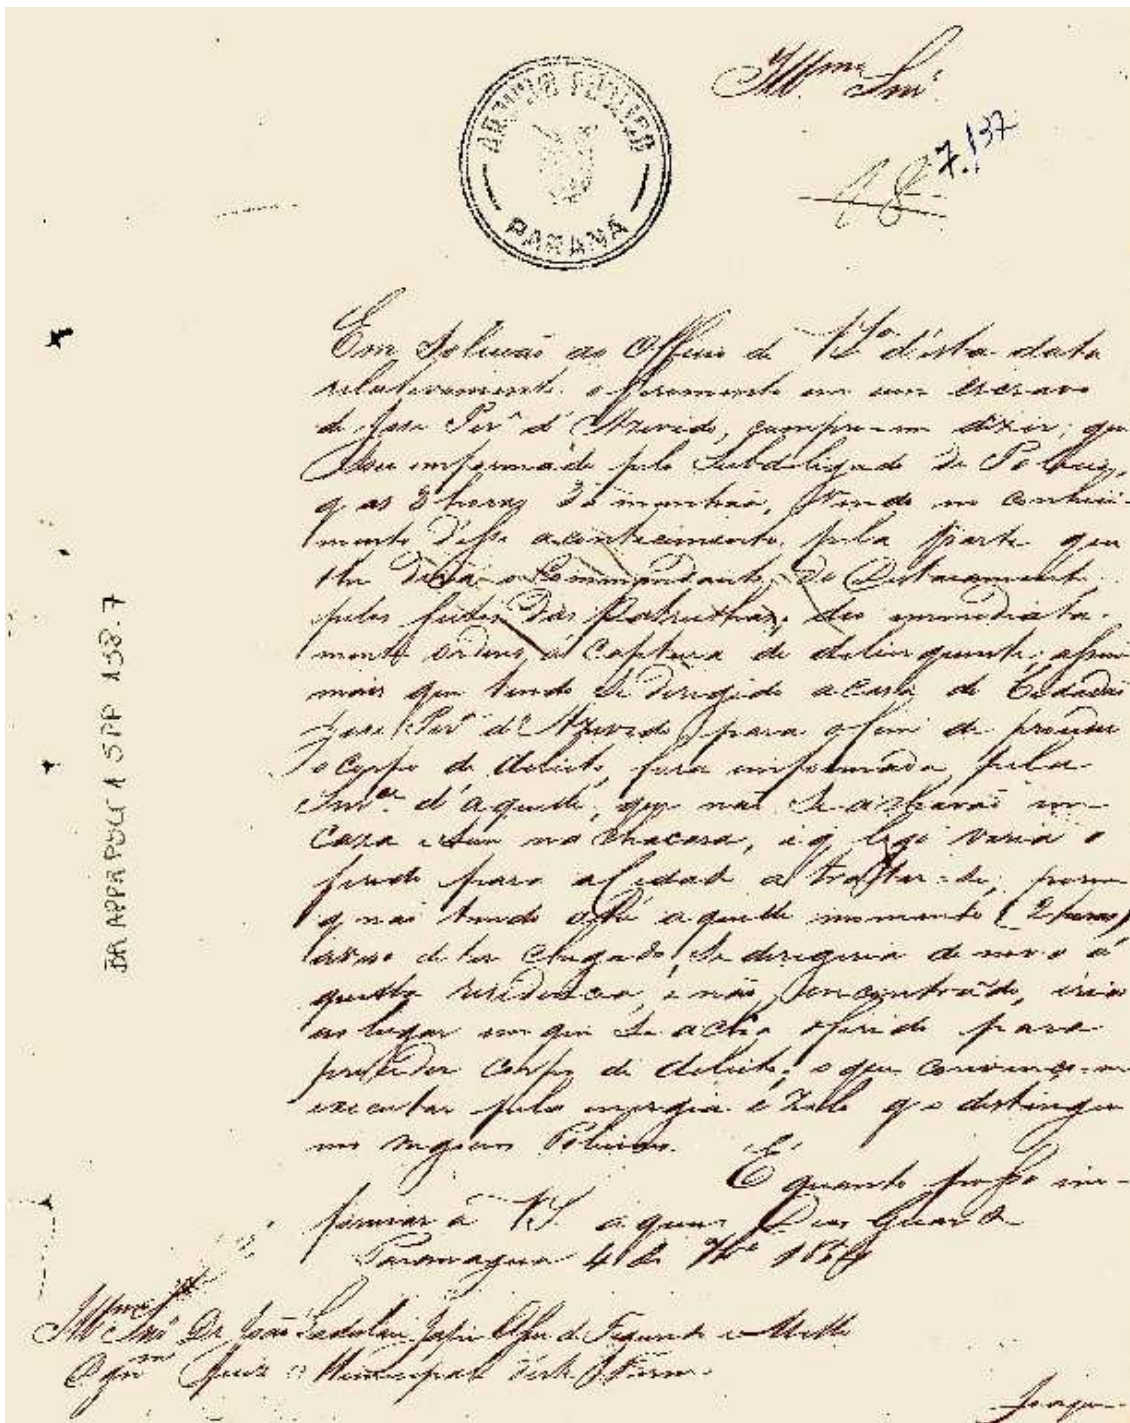 Illmo Snr.
ARQUIVO PUBLICO
PARANÁ
98
7.137
Em solução ao Officio de V.Sa. d'esta data
relativamente o ferimento em um escravo
de Jose Per.a d'Azevedo, cumpre-me dizer, que
sou informado pelo Subdelegado de Policia,
q as 8 horas da manhaã, vindo no conheci-
mento d'esse acontecimento pela parte que
lhe dera o Commandante do Destacamento
das Patrulhas, deo immediata-
mente ordens á captura do delinquente; assim
mais que tendo se derigido a casa do Cedadaõ
Jose Per.a d'Azevedo para o fim de proceder
o corpo de delicto, fora informado pela
Snr.a d'aquelle, que naõ se axhavaõ em
Caza e sim na chacara, e q logo viria o
ferido para a Cidade a trattar-se, porem
q naõ tendo até aquelle momento (2 horas)
aviso de ter chegado, se derigiria de novo á
quella residencia, e naõ encontrado, iria
ao lugar em que se acha o ferido para
proceder corpo de delicto; o que convenço-me
executar pela energia e zelo q o distingue
nos negocios Policiaes.
É quanto posso in-
formar a V.S. a quem Deos Guarde
Paranagua 4 de 7bro 1854
Illmo Snr. Dr. João Ladislau Japi-Assu de Figueredo e Mello
Dgmo Juiz Municipal deste Termo.
Joaqu
BR APPR PB001 A SPP 138.7